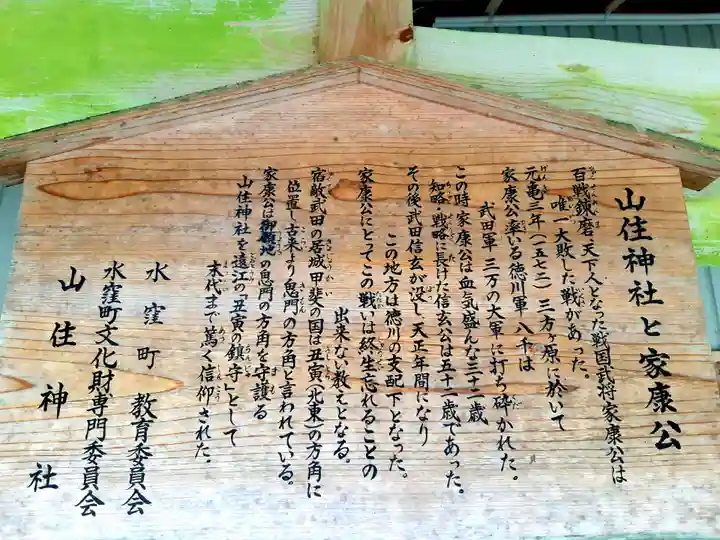 山住神社と家康公
百戦錬磨、天下人となった戦国武将家康公は
唯一大敗した戦があった。
元亀三年(一五七二)三方ヶ原に於いて
家康公率いる徳川軍 八千は
武田軍 三万の大軍に打ち砕かれた。
この時家康公は血気盛んな三十一歳
知略・戦略に長けた信玄公は五十一歳であった。
その後武田信玄が没し天正年間になり
この地方は徳川の支配下となった。
家康公にとってこの戦いは終生忘れることの
出来ない教えとなる。
宿敵武田の居城、甲斐の国は丑寅(北東)の方角に
位置し古来より鬼門の方角と言われている。
家康公は御領地の鬼門の方角を守護る
山住神社を遠江の「丑寅の鎮守」として
末代まで篤く信仰された。
水窪町 教育委員会
水窪町文化財専門委員会
山住神社